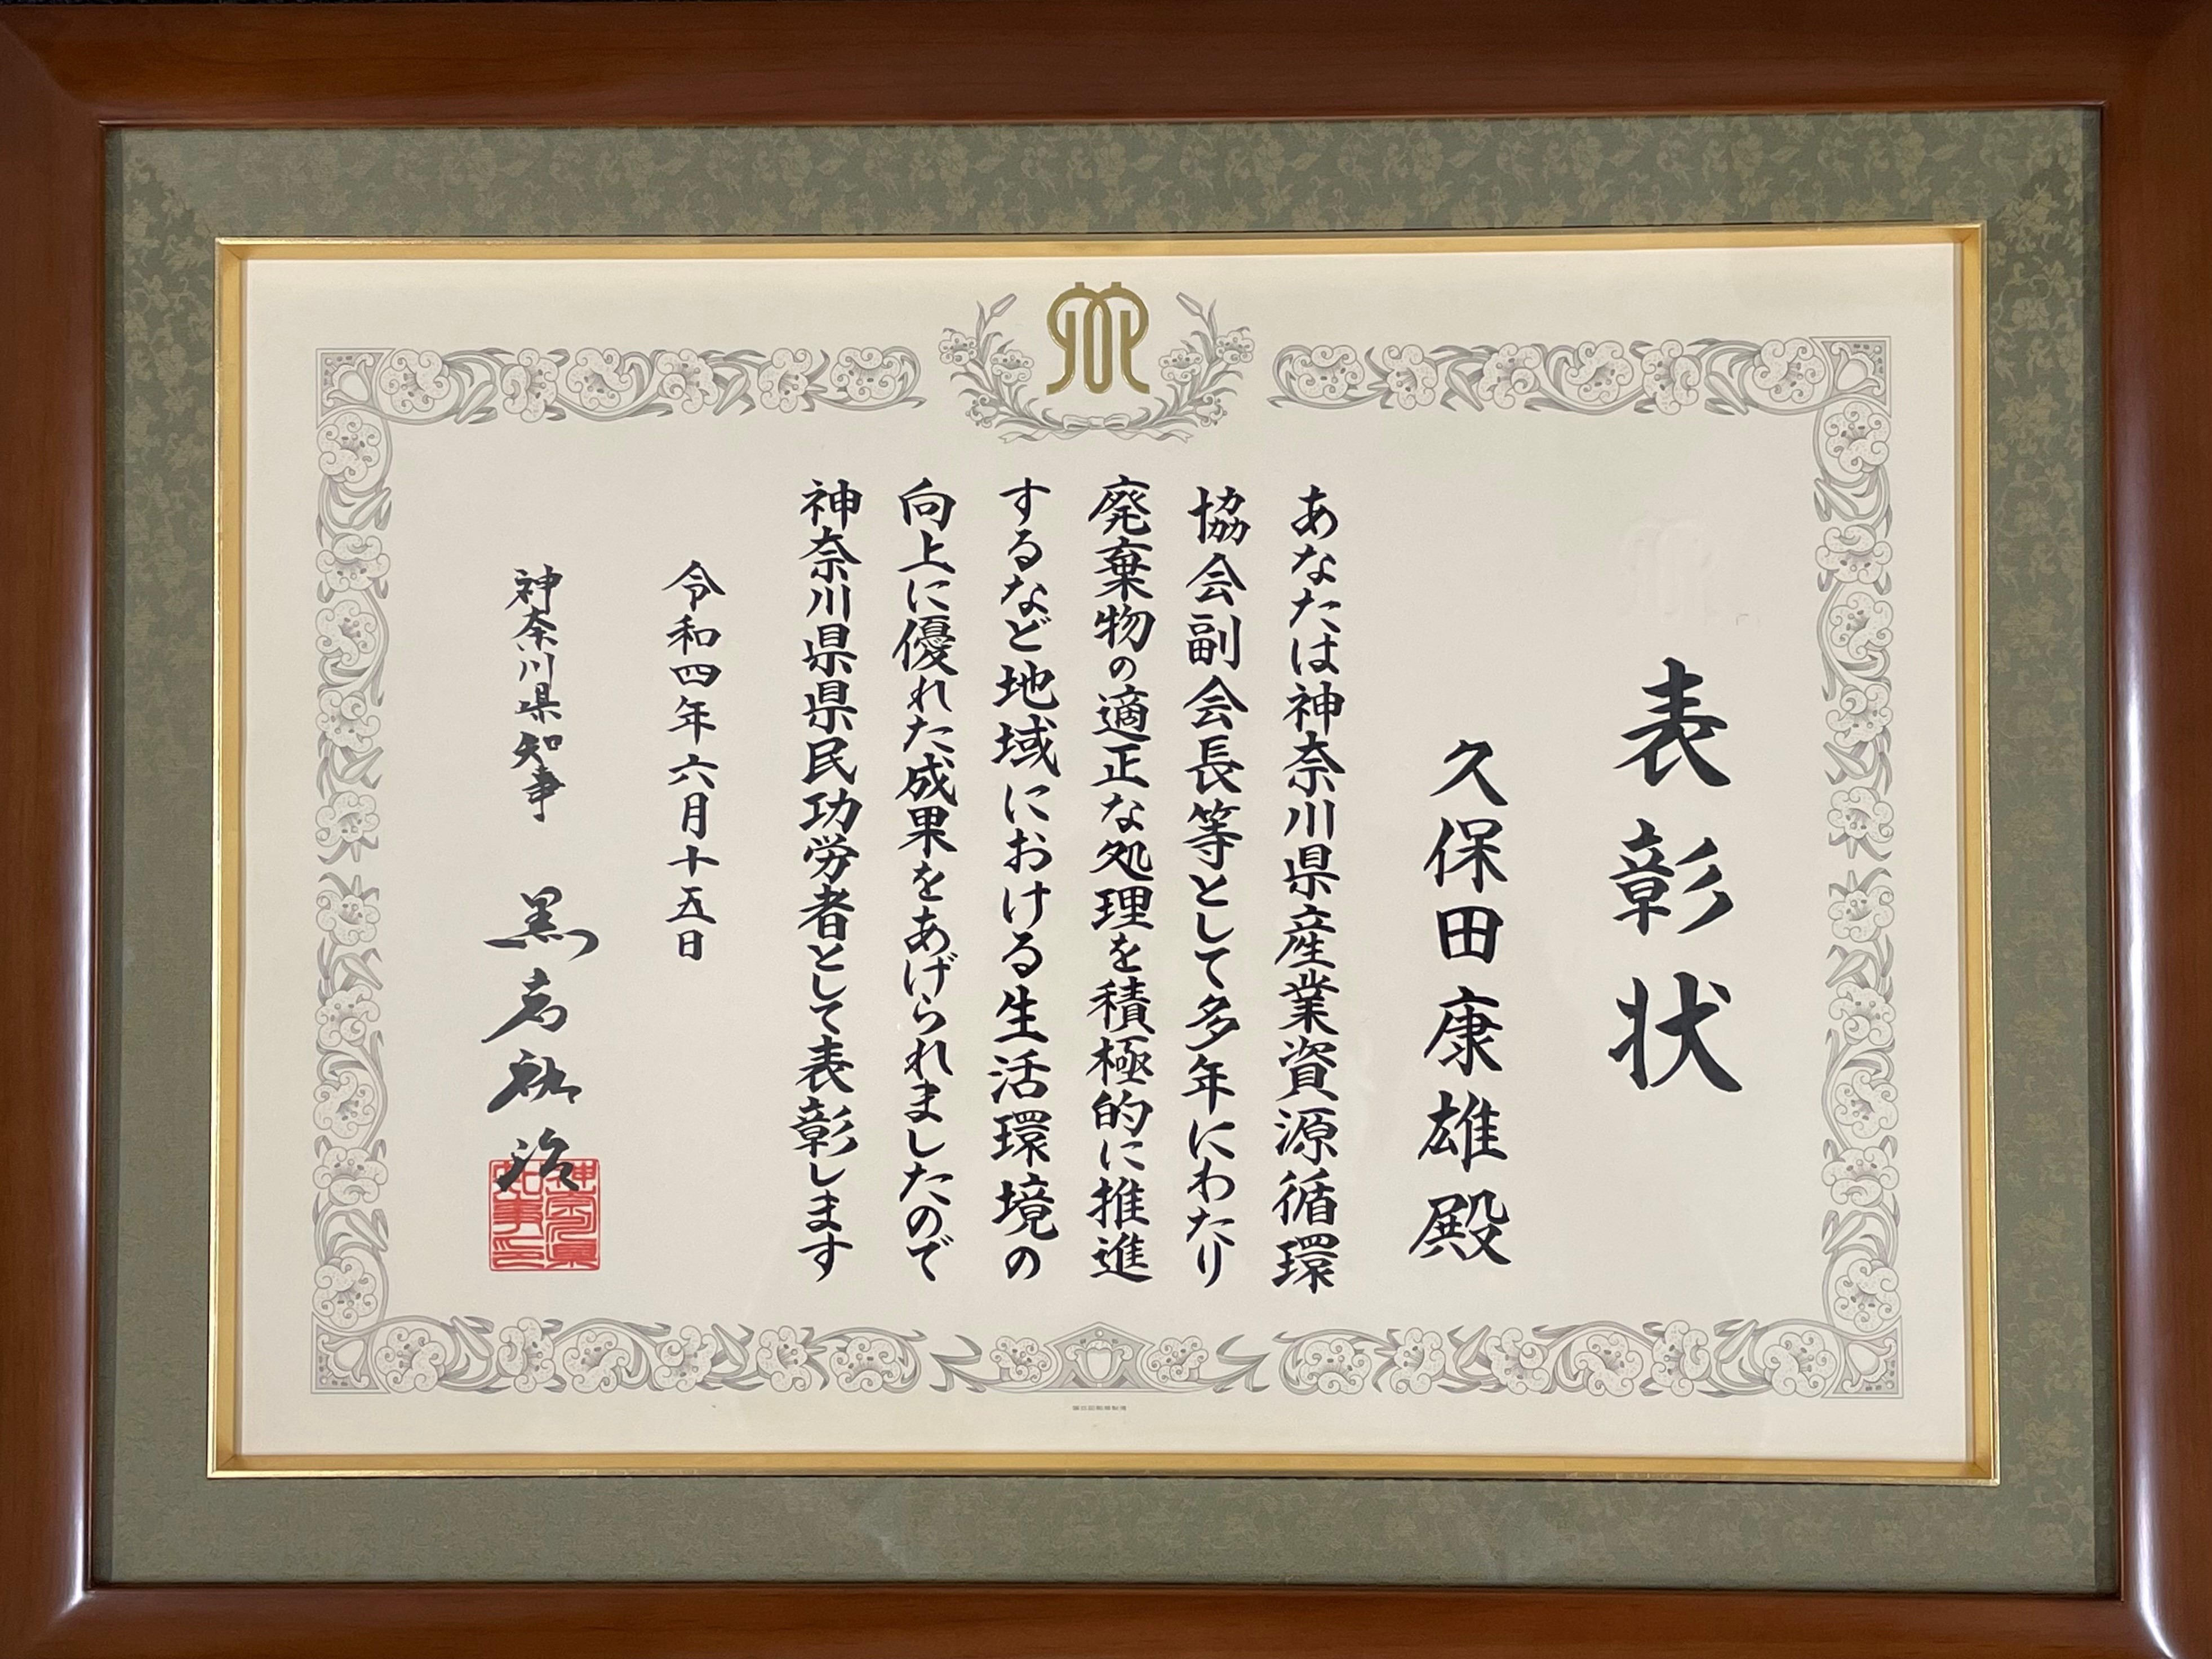 表彰状
久保田康雄殿
あなたは神奈川県産業資源循環
協会副会長等として多年にわたり
廃棄物の適正な処理を積極的に推進
するなど地域における生活環境の
向上に優れた成果をあげられましたので
神奈川県県民功労者として表彰します
令和四年六月十五日
神奈川県知事 黒岩祐治
神奈川県
知事之印